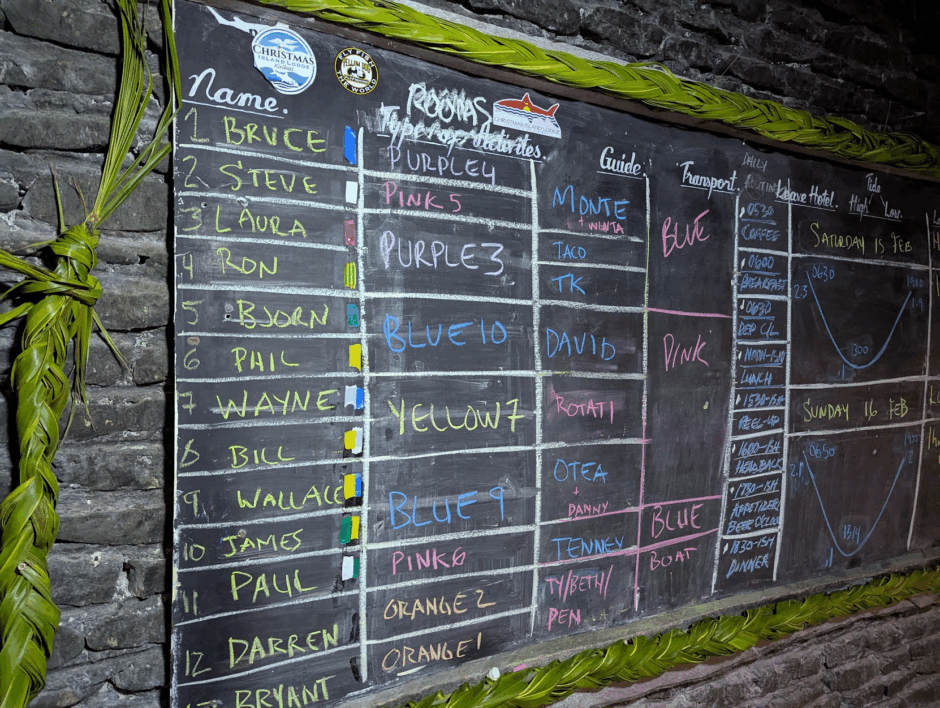 CHRISTMAS
ISLAND LODGE
Kiribati
FLY FISH
THE WORLD
CHRISTMAS ISLAND LODGE
Name.
ROOMS
Guide
Transport.
DAILY
ROUTINE
Leave Hotel.
Tide
High Low.
1 BRUCE
2 STEVE
3 LAURA
4 RON
5 BJORN
6 PHIL
7 WAYNE
8 BILL
9 WALLACE
10 JAMES
11 PAUL
12 DARREN
BRYANT
PURPLE 4
PINK 5
PURPLE 3
BLUE 10
YELLOW 7
BLUE 9
PINK 6
ORANGE 2
ORANGE 1
MONTE
TACO
TK
DAVID
ROTATI
OTEA
+ DANNY
TENNEY
TY/BETH/
PEN
BLUE
PINK
BLUE
BOAT
0530
COFFEE
0600
BREAKFAST
0630
DEP C/L
NOON-ISH
LUNCH
1530-ISH
REEL-UP
1600-ISH
HEAD BACK
1730-ISH
APPETIZER/
BEER O'CLOCK
1830-ISH
DINNER
SATURDAY 15 FEB
0630
2.3
1.9
1300
SUNDAY 16 FEB
0650
1314